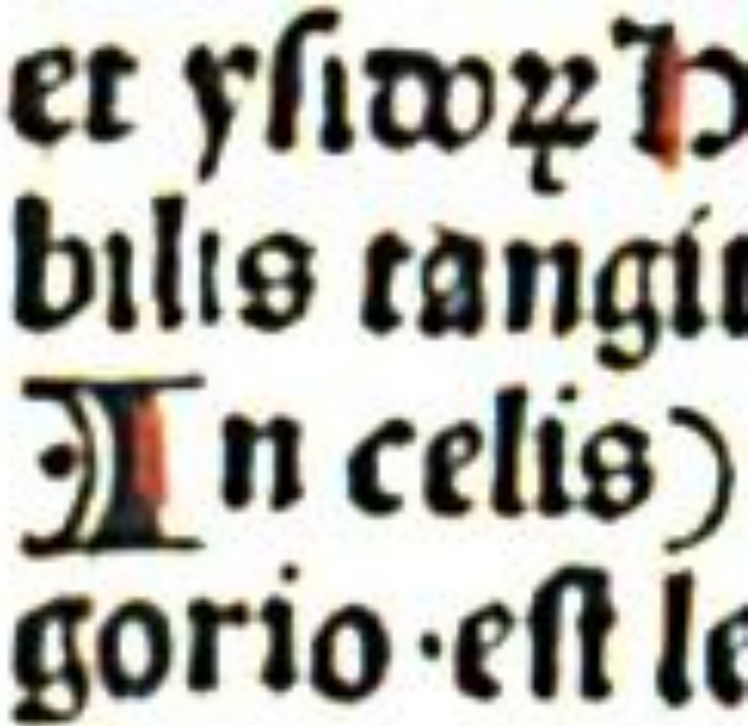 et yſidoꝝ
bilis tangit
In celis)
gorio·eſt le